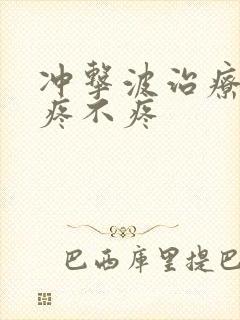 冲擊波治療
疼不疼
巴西库里提巴